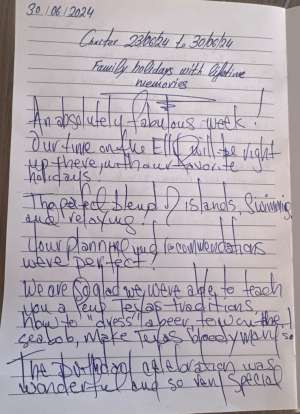 30/06/2024
Charter 23/06/24 to 30/06/24
Family holidays with lifetime
memories
An absolutely fabulous week!
Our time on the Elly will be right
up there with our favorite
holidays.
The perfect blend of islands, swimming
and relaxing!
Your planning and recommendations
were perfect!
We are so glad we were able to teach
you a few Texas traditions
how to "dress" a beer, to use the
seabob, make Texas bloody mary's!
The birthday celebration was
wonderful and so very special